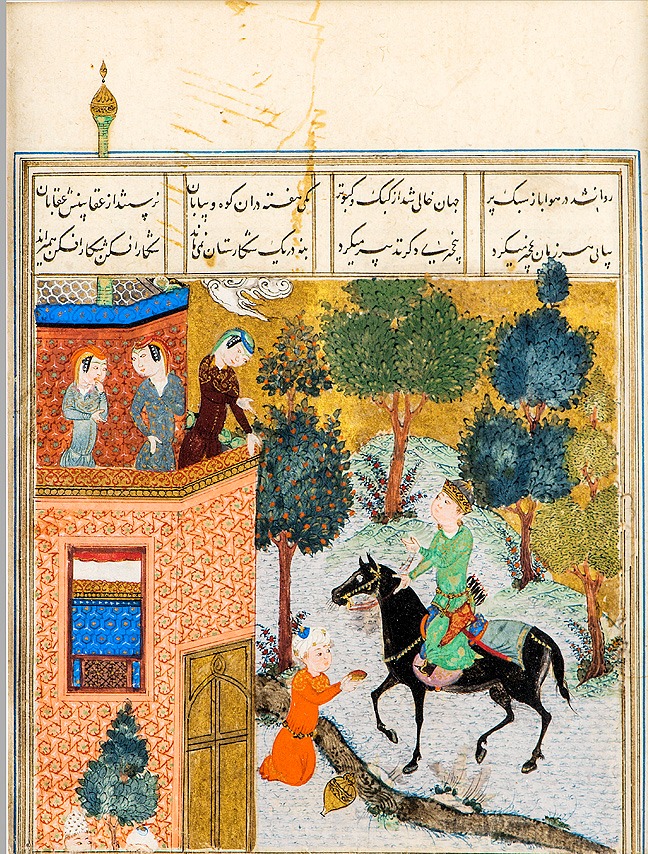 روانشد در هوا باز سبک پر جهان خالی شد از کبک و کبوتر یکی هفته دران کوه و بیابان نرستند از عقابینش عقابان
پیاپی هر زمان نخجیر میکرد بنخجیری دکر تدبیر میکرد بنه در یک شکارستان نمی ماند شکار افکن شکار افکن همیراند